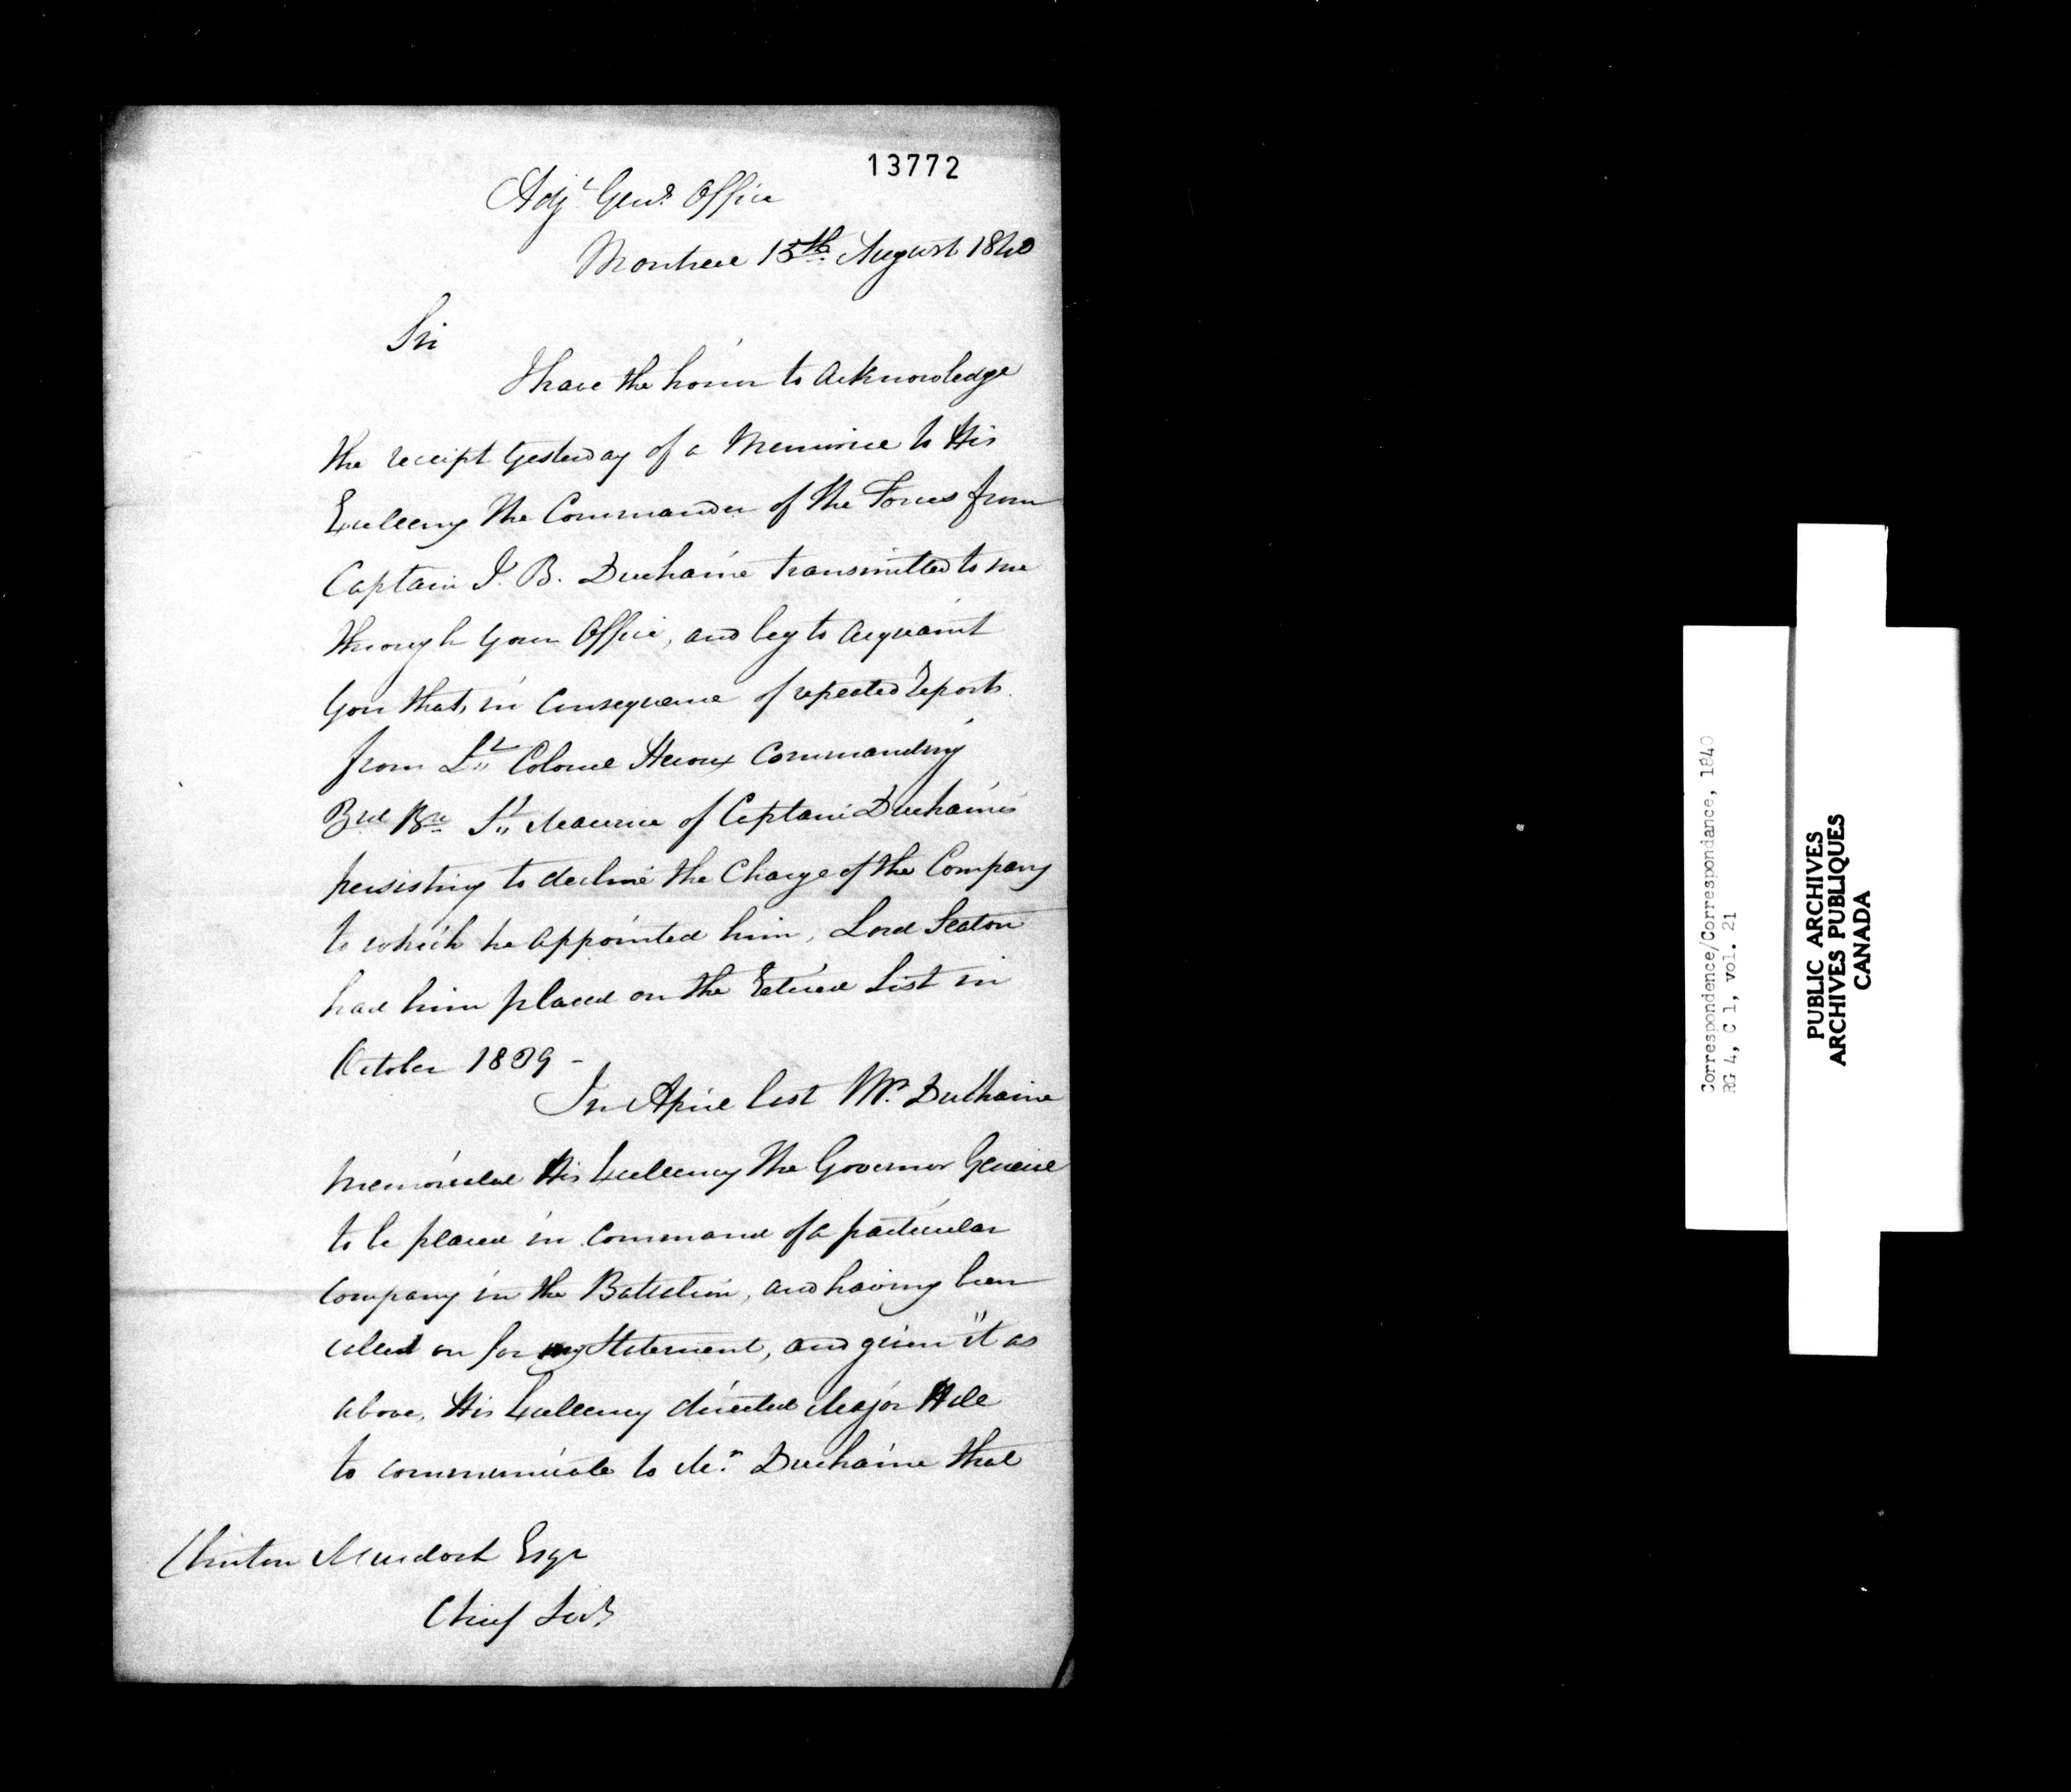 13772
Adjt Genls Office
Montreal 15th August 1840
Sir
I have the honor to acknowledge
the receipt yesterday of a Memorial to His
Excellency the Commander of the Forces from
Captain J. B. Duchaine transmitted to me
through your Office, and beg to acquaint
you that, in consequence of repeated reports
from Lt Colonel Heroux Commanding
3rd Bn St Maurice of Captain Duchaine's
persisting to decline the Charge of the Company
to which he appointed him, Lord Seaton
had him placed on the retired List in
October 1839 -
In April last Mr. Duchaine
memorialed His Excellency the Governor General
to be placed in Command of a particular
Company in the Battalion, and having been
called on for my Statement, and given it as
above, His Excellency directed Major Hall
to communicate to Mr. Duchaine that
Murdoch Esqr
Chief Secy
Correspondence/Correspondance, 1840
RG 4, C 1, vol. 21
PUBLIC ARCHIVES
ARCHIVES PUBLIQUES
CANADA